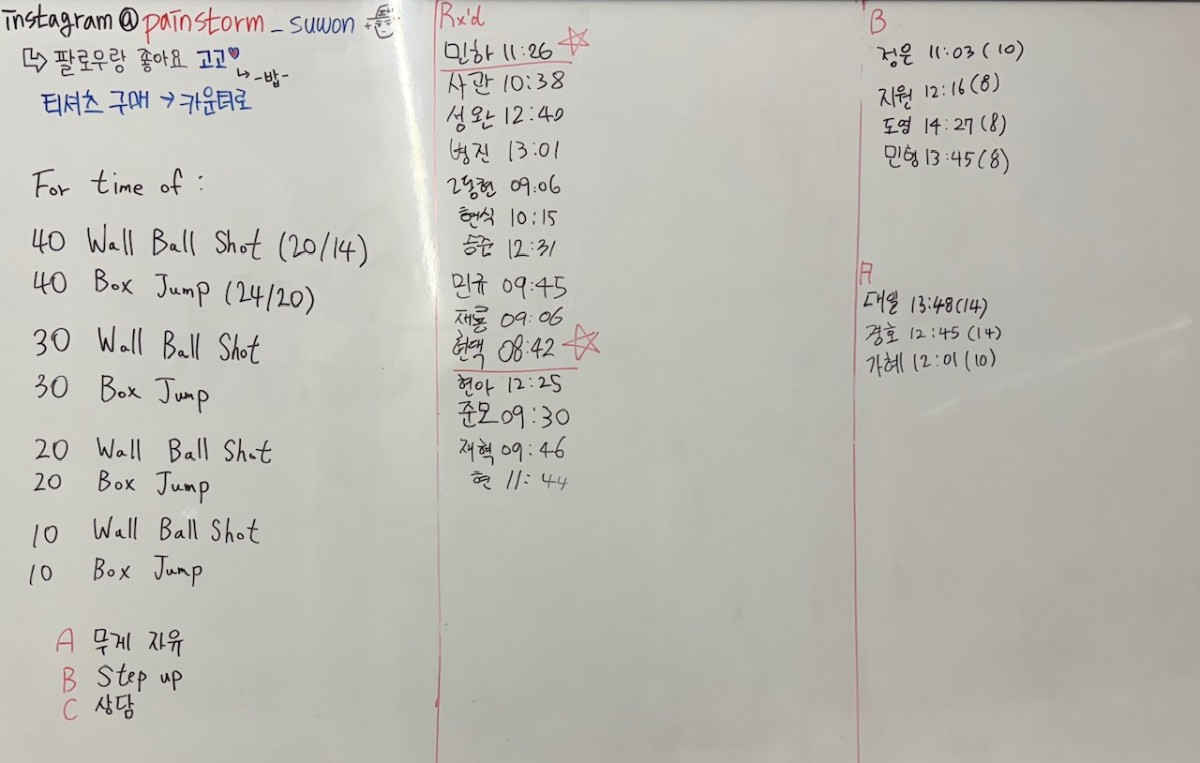 instagram@painstorm_suwon
↳ 팔로우랑 좋아요 고고♥
↳ -밥-
티셔츠 구매 → 카운터로
For time of :
40 Wall Ball Shot (20/14)
40 Box Jump (24/20)
30 Wall Ball Shot
30 Box Jump
20 Wall Ball Shot
20 Box Jump
10 Wall Ball Shot
10 Box Jump
A 무게 자유
B Step up
C 상담
Rx'd
민하 11:26
사관 10:38
성완 12:40
병진 13:01
09:06
현식 10:15
승준 12:31
민규 09:45
재롱 09:06
현택 08:42
현아 12:25
준모 09:30
재혁 09:46
현 11:44
B
정은 11:03(10)
지원 12:16(8)
도영 14:27(8)
민형 13:45(8)
A
대일 13:48(14)
경호 12:45(14)
가혜 12:01(10)